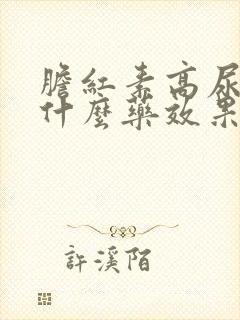 膽紅素高尿
什麼藥效果
許溪陌